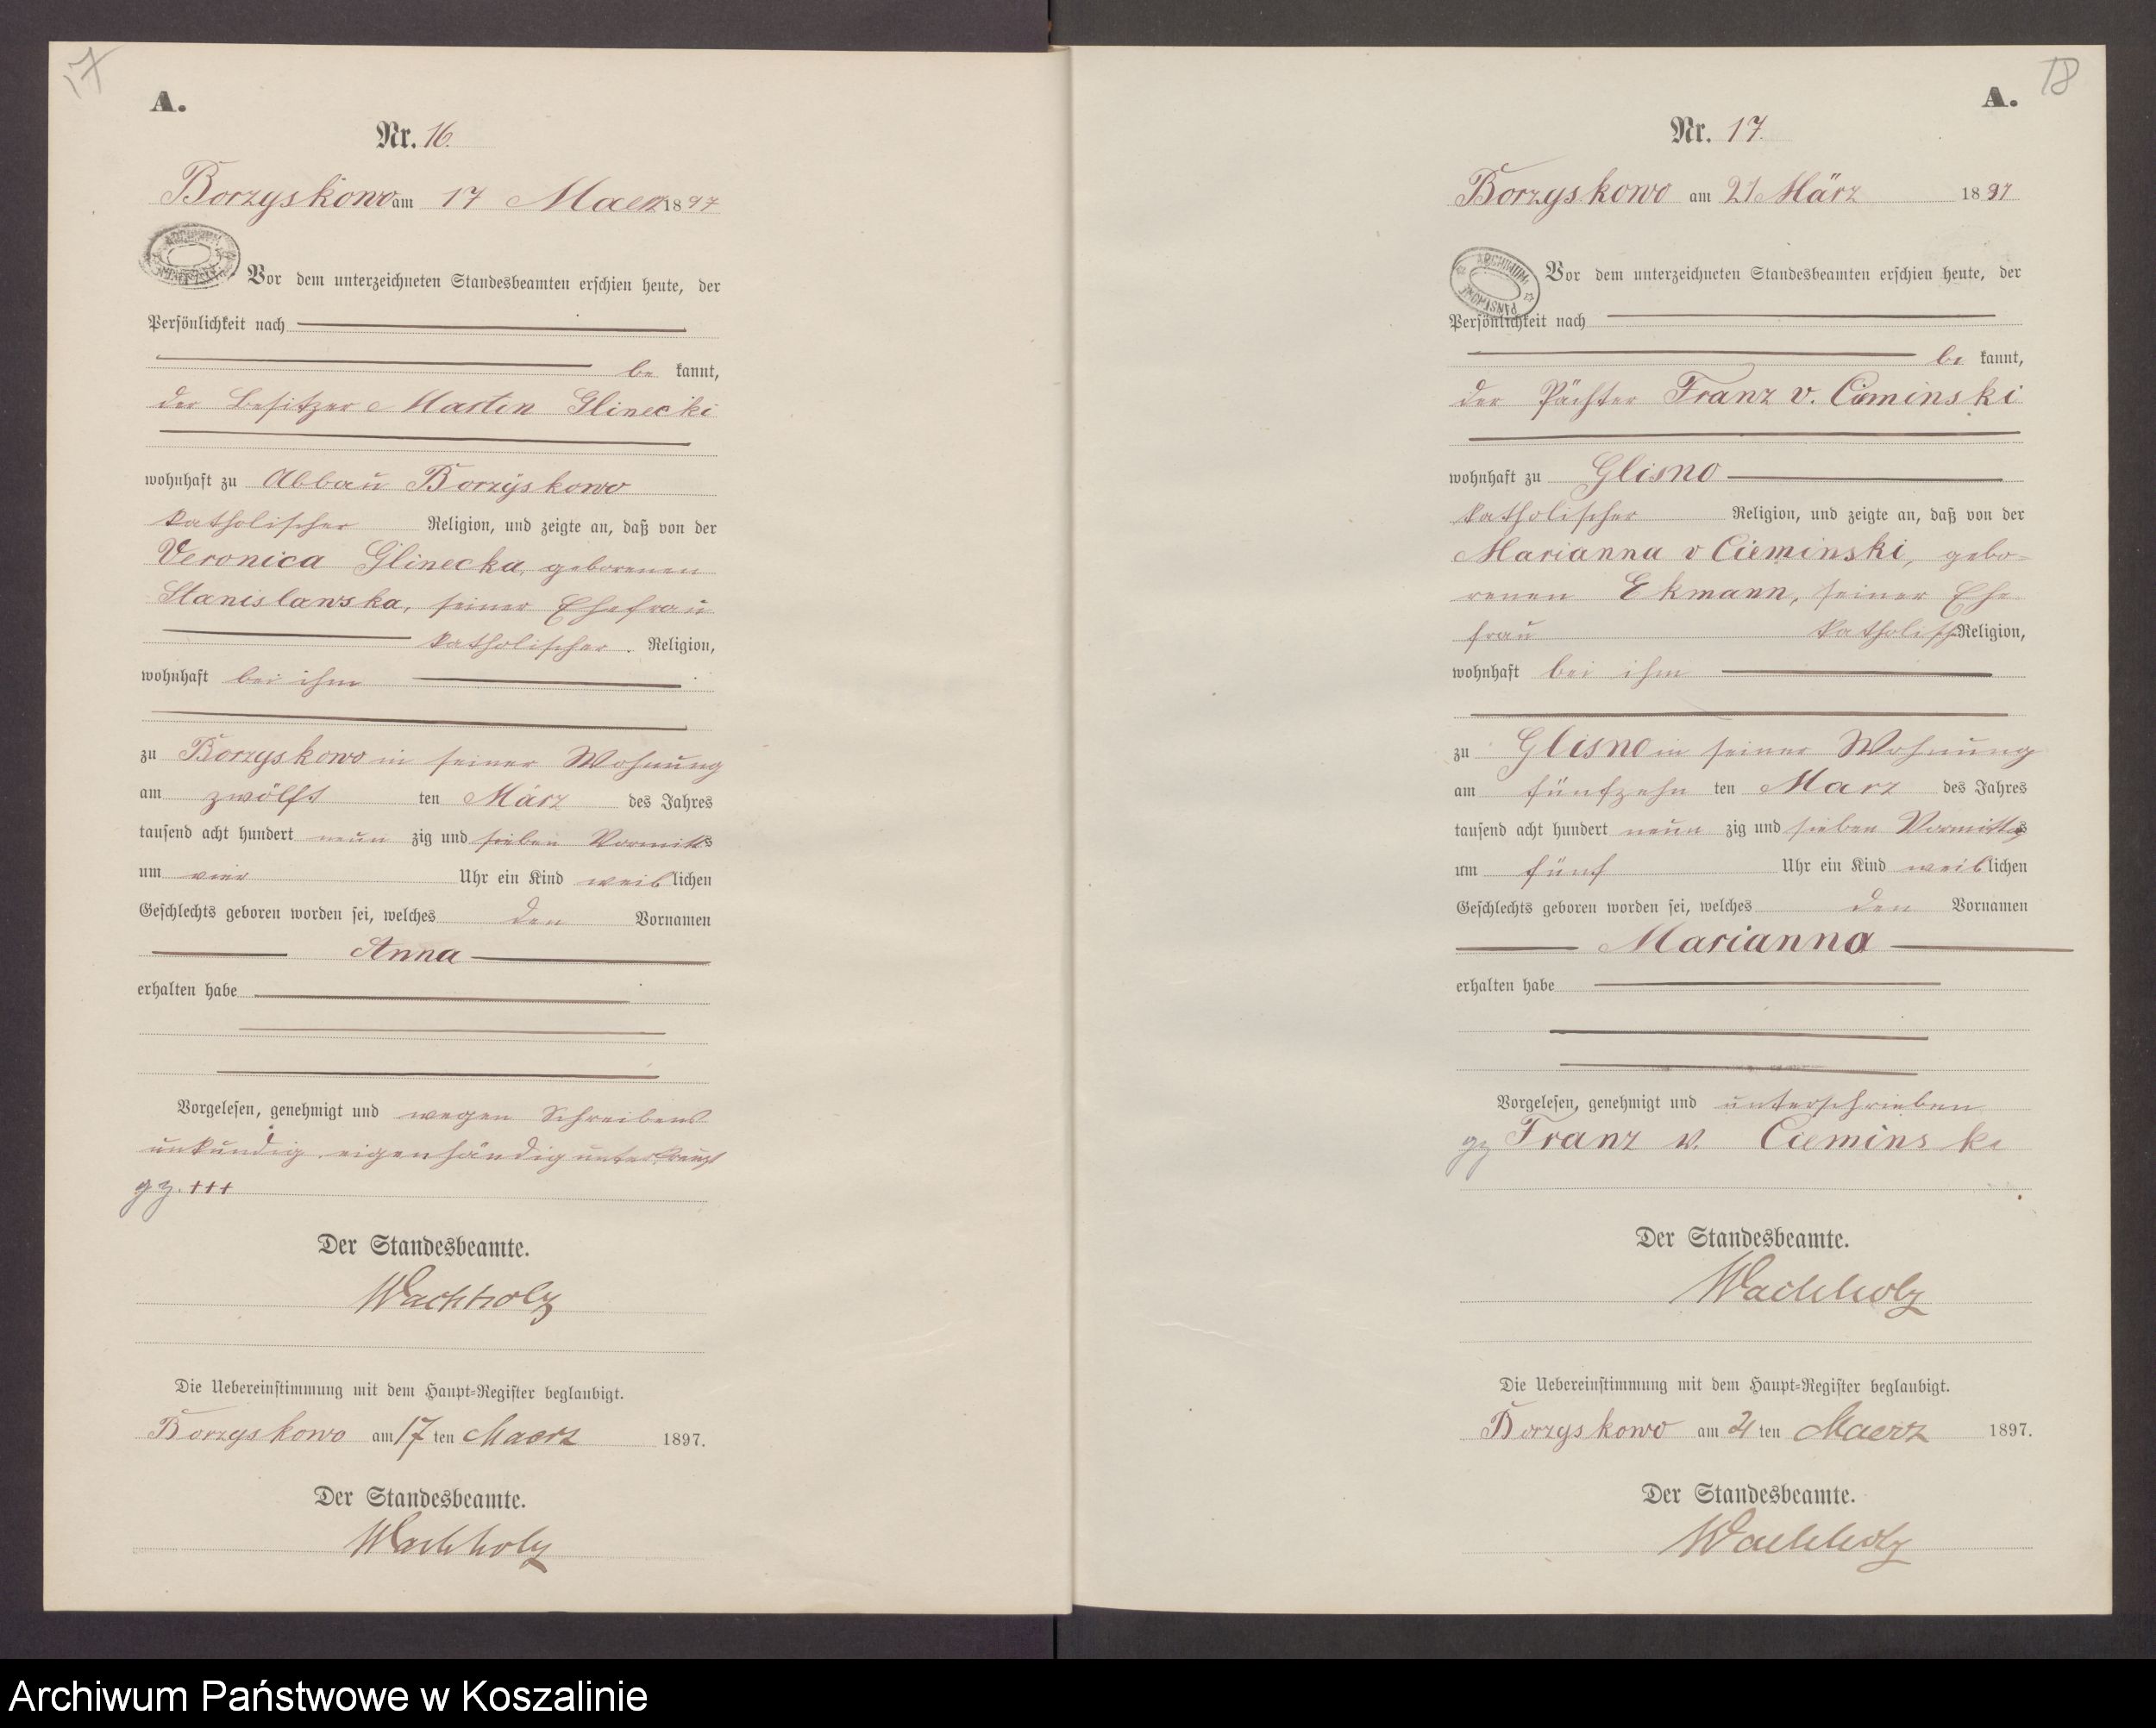 17
A.
Nr. 16.
Borzyskowo am 17 Maerz 1897
Vor dem unterzeichneten Standesbeamten erschien heute, der
Persönlichkeit nach
be kannt,
der Besitzer Martin Glinecki
wohnhaft zu Abbau Borzyskowo
katholischer Religion, und zeigte an, daß von der
Veronica Glinecka, geborenen
Stanislawska, seiner Ehefrau
katholischer Religion,
wohnhaft bei ihm
zu Borzyskowo in seiner Wohnung
am zwölf ten März des Jahres
tausend acht hundert neun zig und sieben Vormitts
um vier Uhr ein Kind weiblichen
Geschlechts geboren worden sei, welches den Vornamen
Anna
erhalten habe
Vorgelesen, genehmigt und wegen Schreibens
unkundig eigenhändig unterkreuzt
gz. +++
Der Standesbeamte.
Wachholz
Die Uebereinstimmung mit dem Haupt=Register beglaubigt.
Borzyskowo am 17 ten Maerz 1897.
Der Standesbeamte.
Wachholz
18
A.
Nr. 17.
Borzyskowo am 21 März 1897
ARCHIWUM
Vor dem unterzeichneten Standesbeamten erschien heute, der
Persönlichkeit nach
be kannt,
der Pächter Franz v. Cieminski
wohnhaft zu Glisno
katholischer Religion, und zeigte an, daß von der
Marianna v Cieminski, gebo-
renen Ekmann, seiner Ehe
frau katholisch Religion,
wohnhaft bei ihm
zu Glisno in seiner Wohnung
am fünfzehn ten Marz des Jahres
tausend acht hundert neun zig und sieben Vormittags
um fünf Uhr ein Kind weiblichen
Geschlechts geboren worden sei, welches den Vornamen
Marianna
erhalten habe
Vorgelesen, genehmigt und unterschrieben
gz Franz v. Cieminski
Der Standesbeamte.
Wachholz
Die Uebereinstimmung mit dem Haupt=Register beglaubigt.
Borzyskowo am 21 ten Maerz 1897.
Der Standesbeamte.
Wachholz
Archiwum Państwowe w Koszalinie